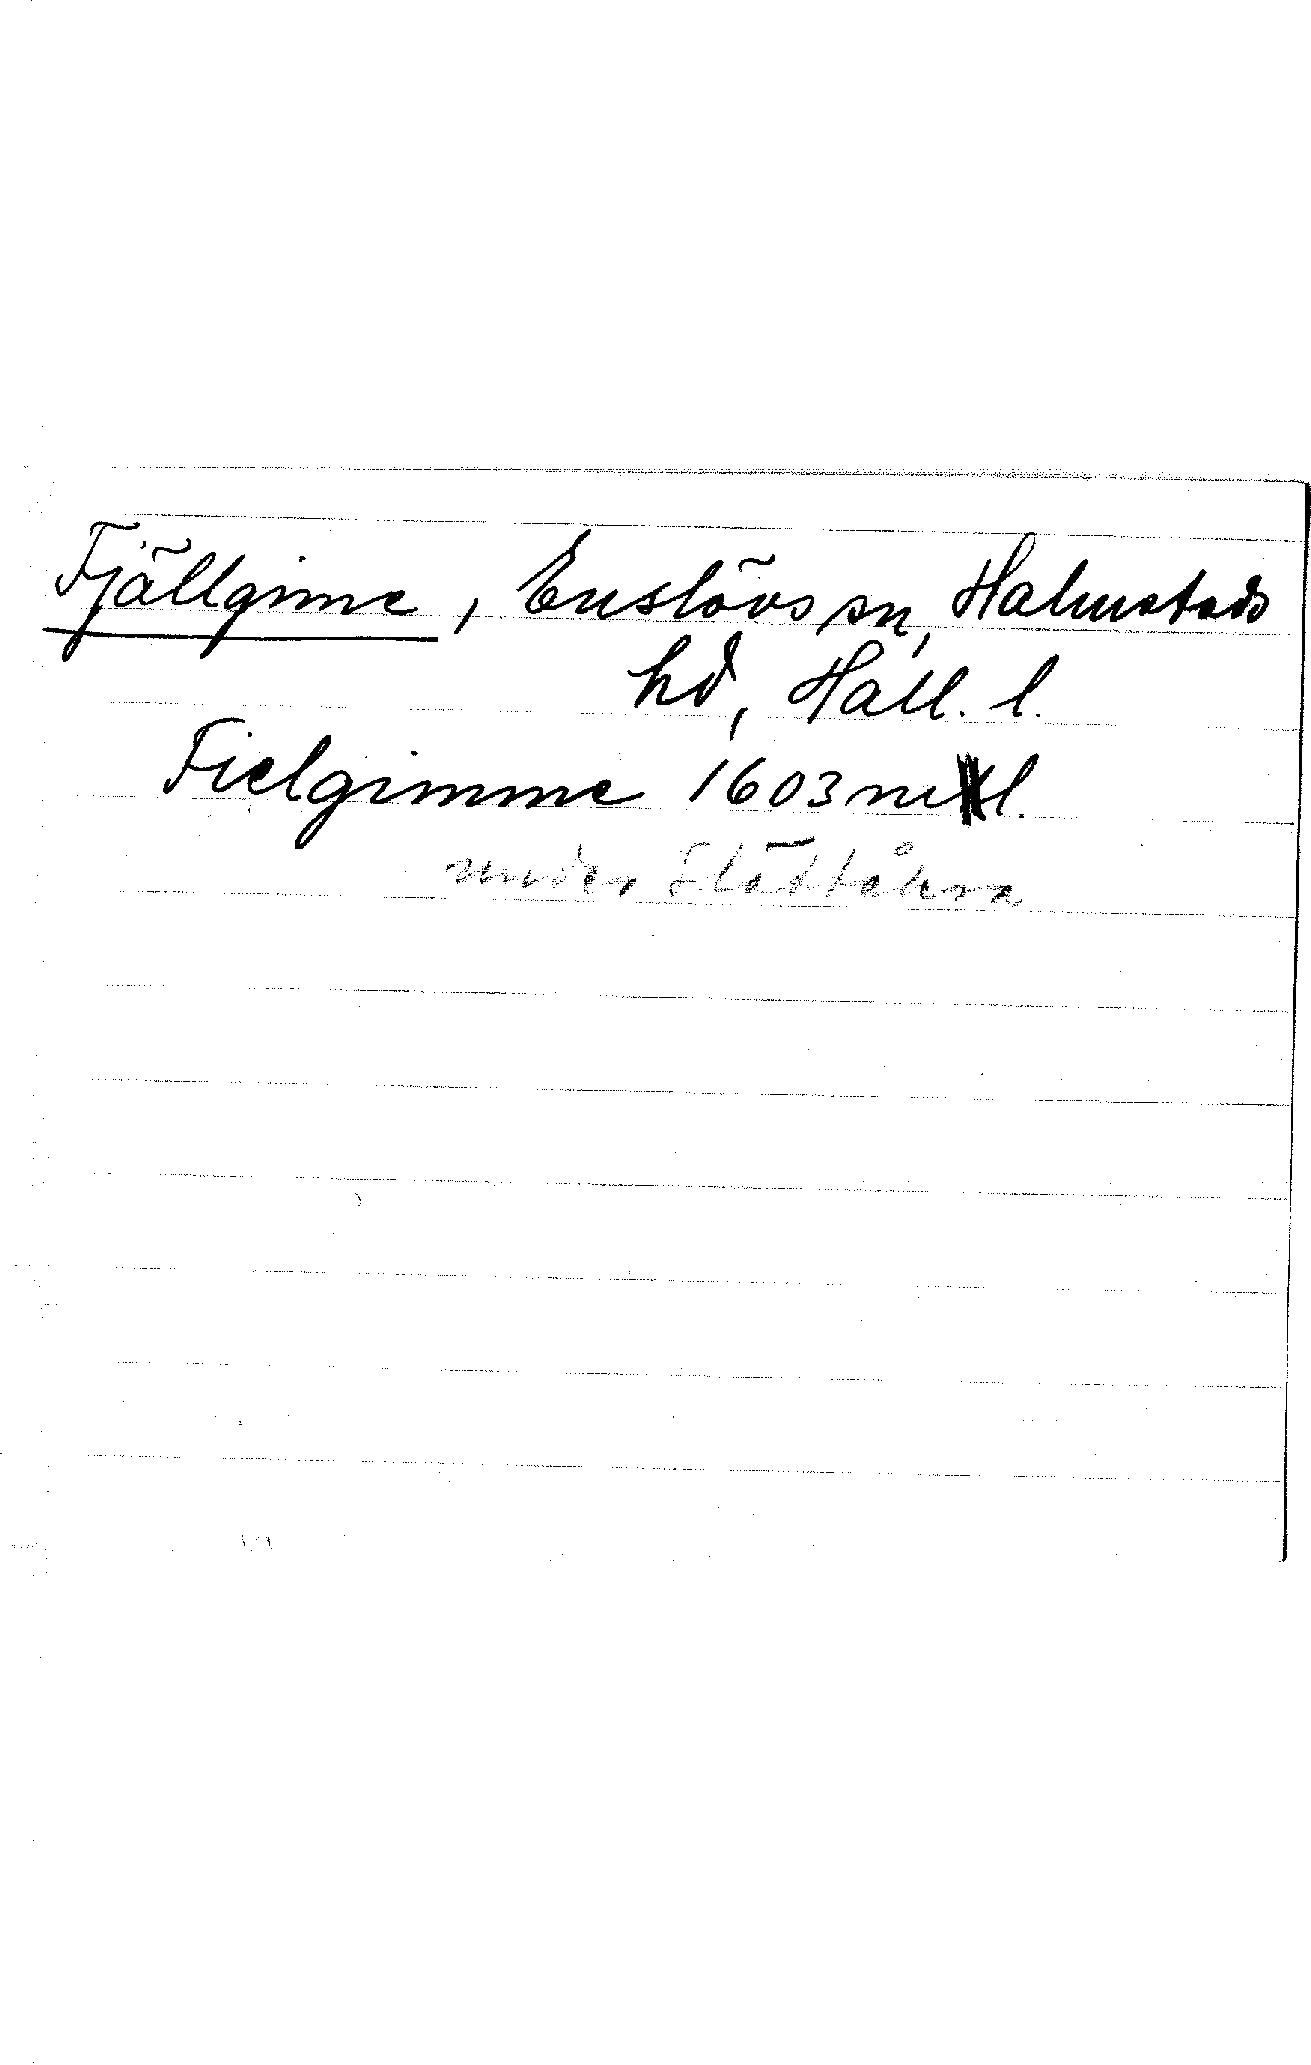 Fjällgime, Enslövs sn, Halmstads
hd, Hall. l.
Fielgimme 1603 ml.
under Slättåkra